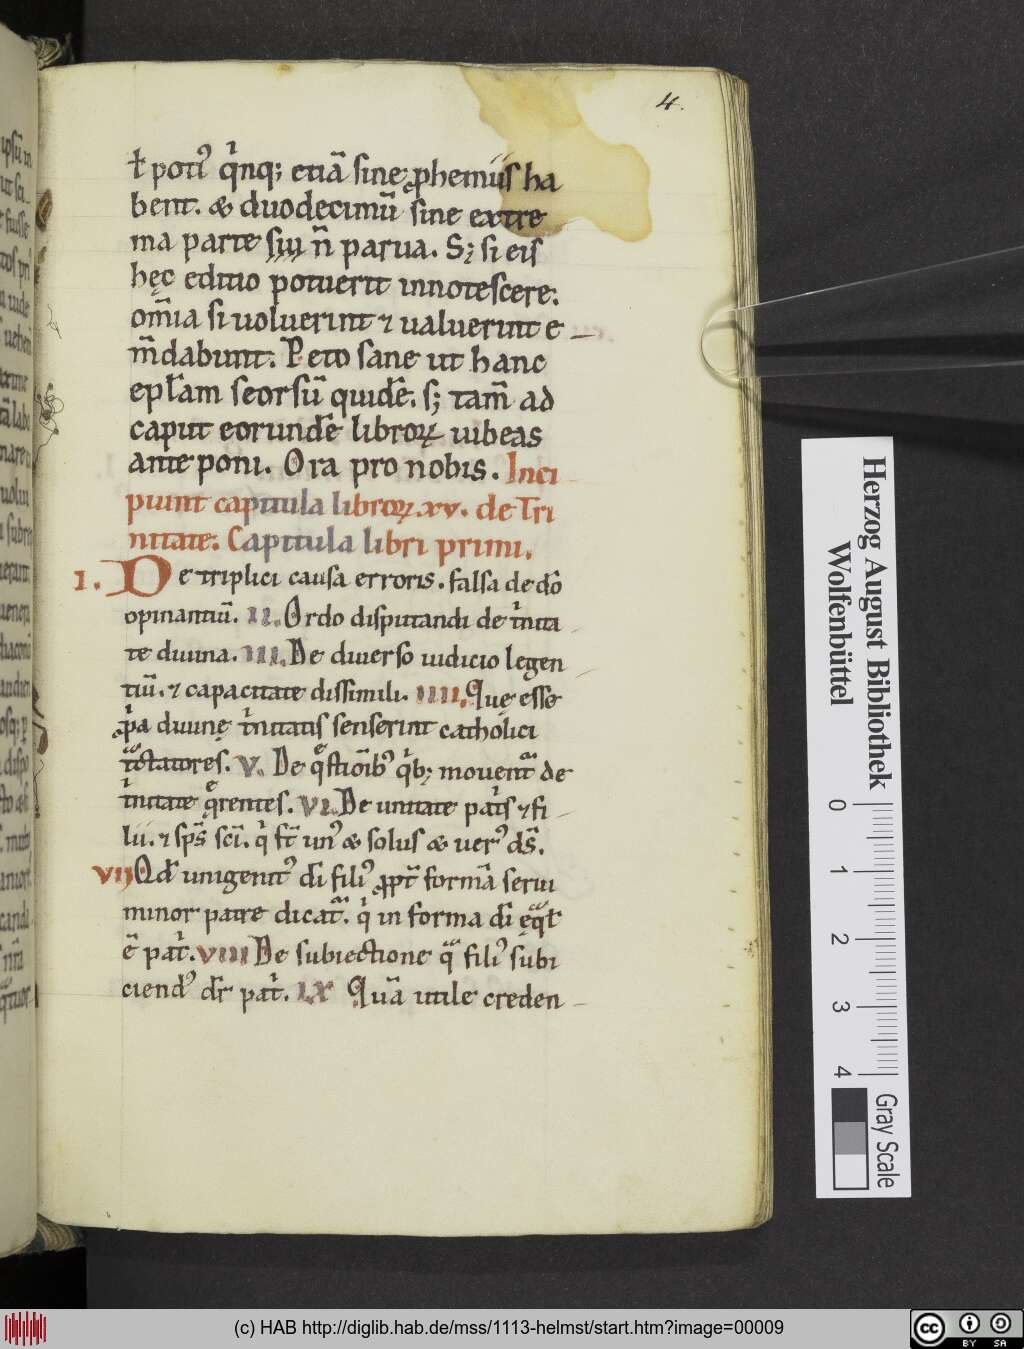 4.
ł poti᷒ qͥnq; etiā sine ꝓhemiis ha
bent. & duodecimū sine extre
ma parte siu n̄ parua. S; si eis
hęc editio potuerit innotescere.
om̄ia si uoluerint ⁊ ualuerint e
m̄dabunt. Peto sane ut hanc
epłam seorsū quidē. s; tam̄ ad
caput eorundē libroꝝ iubeas
ante poni. Ora pro nobis. Inci
piunt capitula libroꝝ .xv. de Tri
nitate. Capitula libri primi.
I. De triplici causa erroris. falsa de dō
opinantiū. II. Ordo disputandi de tͥnita
te diuina. III. De diuerso iudicio legen
tiū. ⁊ capacitate dissimili. IIII. Quę esse
ꝓpͥa diuinę tͥnitatis senserint catholici
tͣctatores. V. De qͤstiōib᷒ qͥb; mouentͣ de
tͥnitate qͤrentes. VI. De unitate patͥs ⁊ fi
lii. ⁊ sp̄s sc̄i. qͥ st̄ un᷒ & solus & uer᷒ ds̄.
VII Qd̄ unigenit᷒ dī fili᷒ ꝓpt̄ formā serui
minor patre dicatͣ. qͥ in forma dī ęqͣł
ē patͥ. VIII De subiectione qͣ fili᷒ subi
ciend᷒ dr̄ patͥ. IX Quā utile creden
Herzog August Bibliothek
Wolfenbüttel
0 1 2 3 4
Gray Scale
(c) HAB http://diglib.hab.de/mss/1113-helmst/start.htm?image=00009
cc BY SA